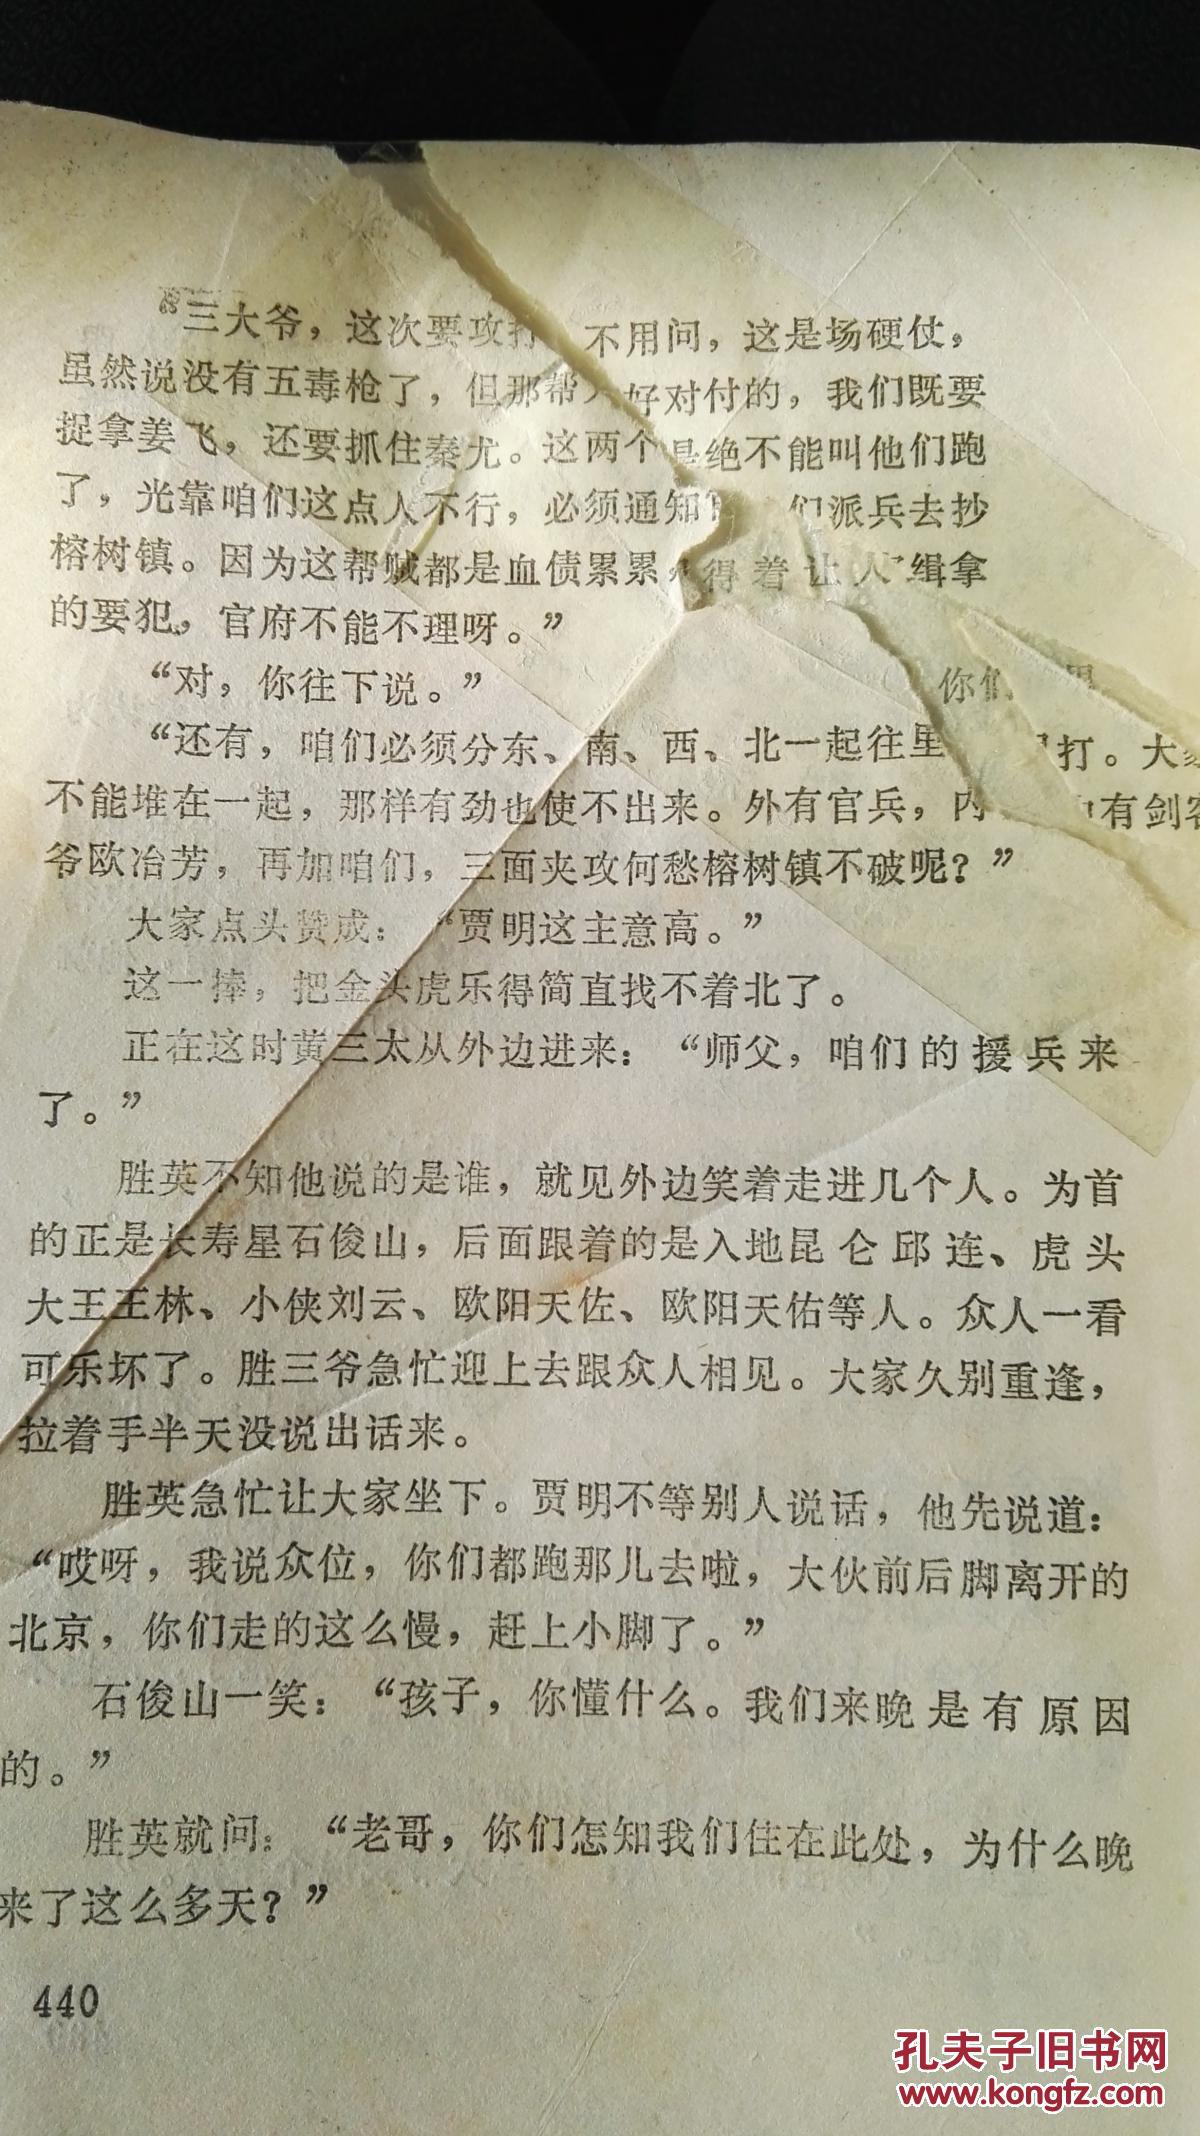 “三大爷，这次要攻打 不用问，这是场硬仗，
虽然说没有五毒枪了，但那帮 好对付的，我们既要
捉拿姜飞，还要抓住秦尤。这两个 是绝不能叫他们跑
了，光靠咱们这点人不行，必须通知 们派兵去抄
榕树镇。因为这帮贼都是血债累累， 得着让人 缉拿
的要犯，官府不能不理呀。”
“对，你往下说。” 你们
“还有，咱们必须分东、南、西、北一起往里 打。大家
不能堆在一起，那样有劲也使不出来。外有官兵，内 有剑客
爷欧冶芳，再加咱们，三面夹攻何愁榕树镇不破呢？”
大家点头赞成：“贾明这主意高。”
这一捧，把金头虎乐得简直找不着北了。
正在这时黄三太从外边进来：“师父，咱们的援兵来
了。”
胜英不知他说的是谁，就见外边笑着走进几个人。为首
的正是长寿星石俊山，后面跟着的是入地昆仑邱连、虎头
大王王林、小侠刘云、欧阳天佐、欧阳天佑等人。众人一看
可乐坏了。胜三爷急忙迎上去跟众人相见。大家久别重逢，
拉着手半天没说出话来。
胜英急忙让大家坐下。贾明不等别人说话，他先说道：
“哎呀，我说众位，你们都跑那儿去啦，大伙前后脚离开的
北京，你们走的这么慢，赶上小脚了。”
石俊山一笑：“孩子，你懂什么。我们来晚是有原因
的。”
胜英就问：“老哥，你们怎知我们住在此处，为什么晚
来了这么多天？”
440
孔夫子旧书网
www.kongfz.com